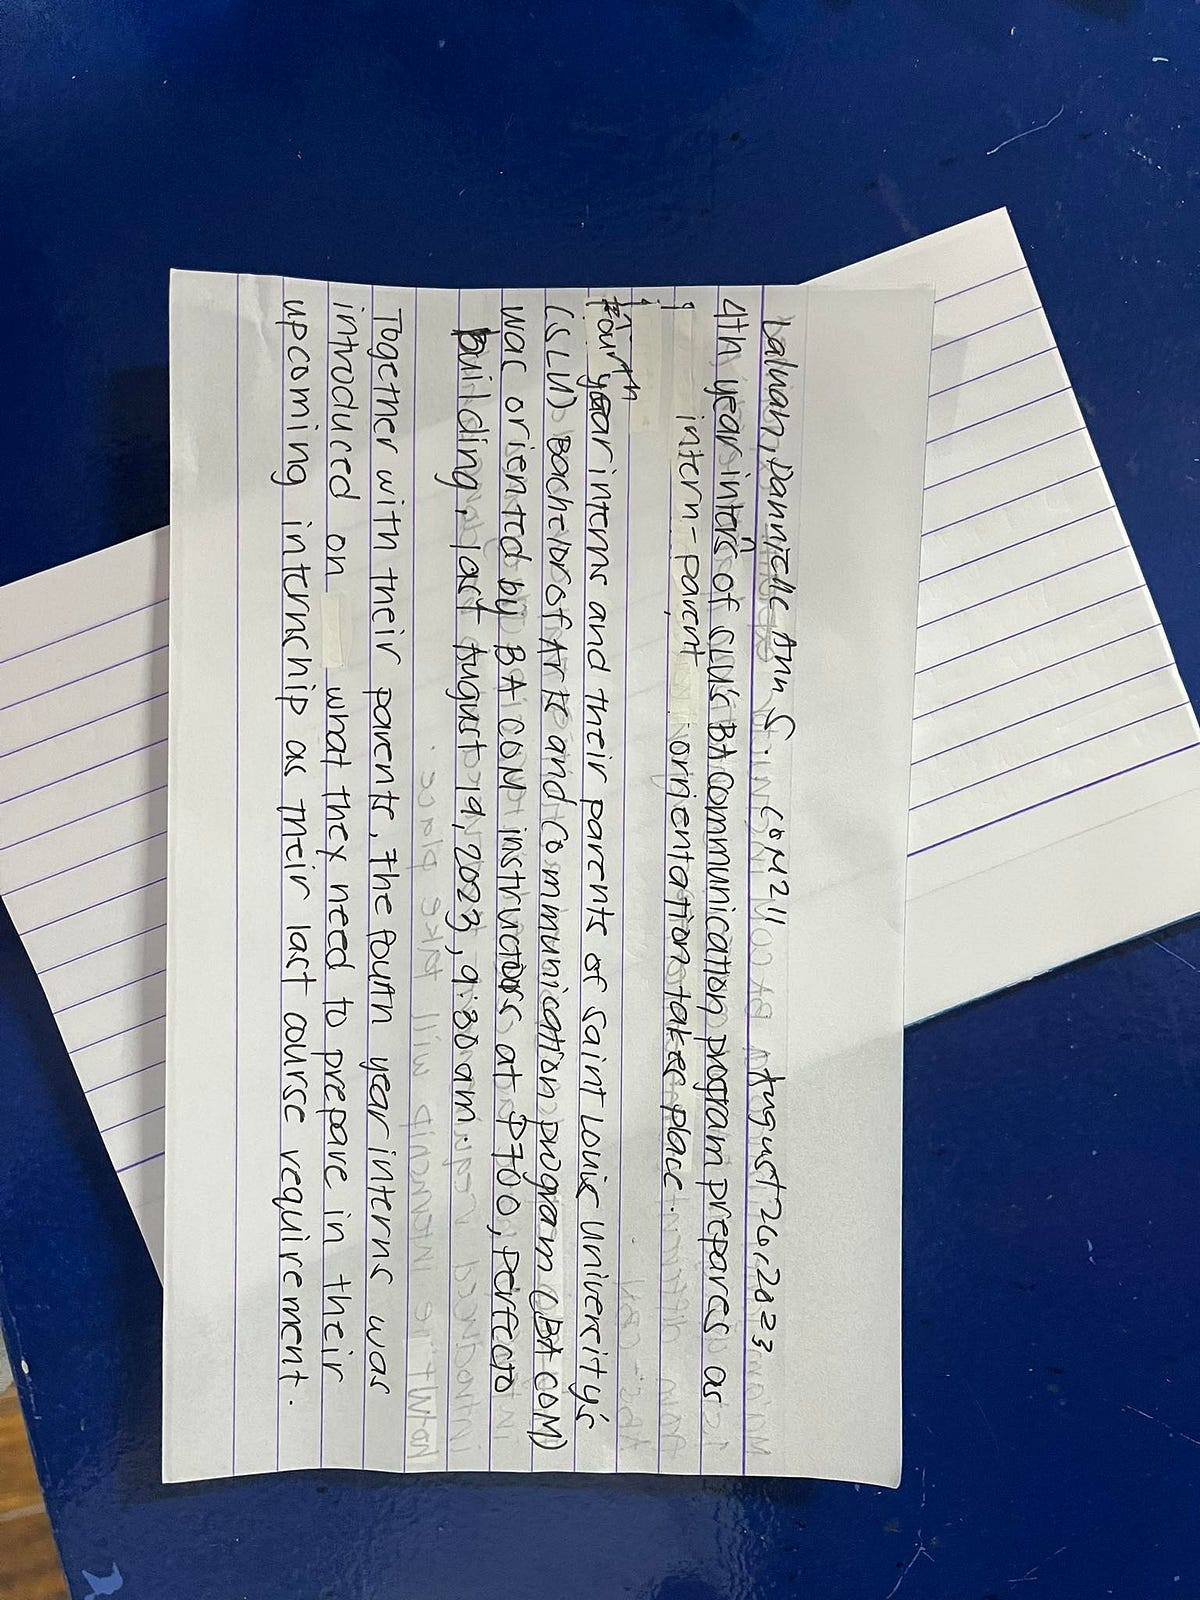 Dannielle Ann S. COM211 August 26, 2023
4th year interns of SLU's BA Communication program prepares as
intern-parent orientation takes place.
Fourth year interns and their parents of Saint Louis University's
(SLU) Bachelor of Arts and Communication program (BA COM)
was oriented by BA COM instructors at P700, Perfecto
building, last August 19, 2023, 9:30 am.
Together with their parents, the fourth year interns was
introduced on what they need to prepare in their
upcoming internship as their last course requirement.